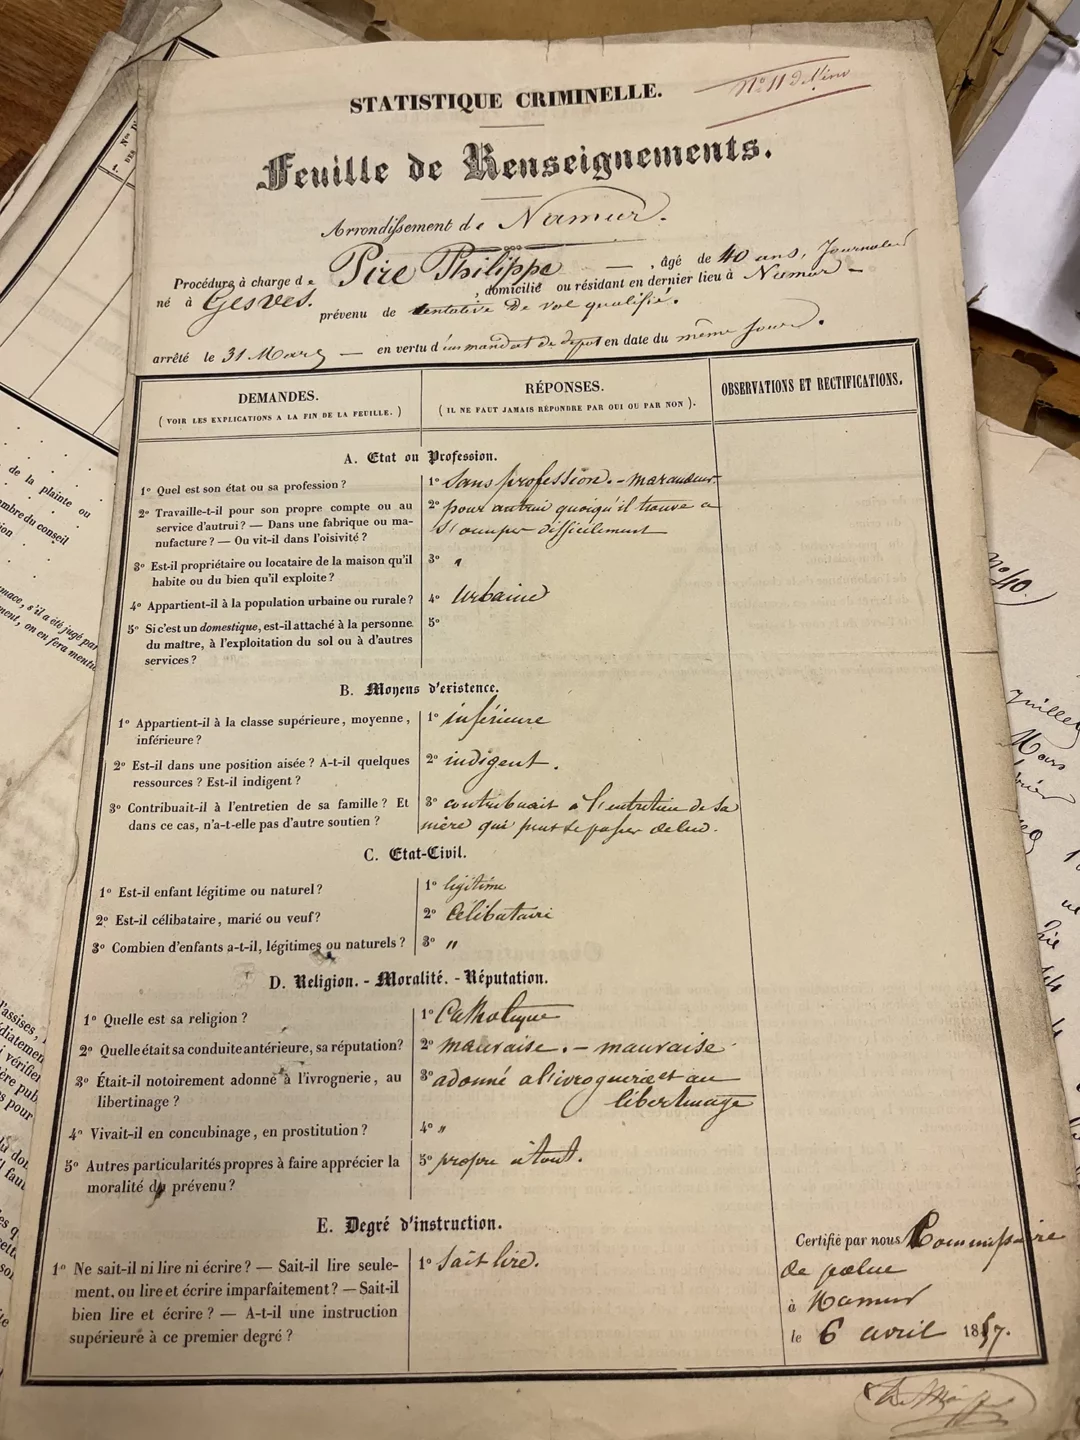 STATISTIQUE CRIMINELLE.
N° 11
Feuille de Renseignements.
Arrondissement de Namur.
Procédure à charge de Pire Philippe — , âgé de 40 ans, Journalier
né à Gesves. , domicilié ou résidant en dernier lieu à Namur —
prévenu de tentative de vol qualifié.
arrêté le 31 Mars — en vertu d'un mandat de dépot en date du même jour.
DEMANDES.
(VOIR LES EXPLICATIONS A LA FIN DE LA FEUILLE.)
RÉPONSES.
(IL NE FAUT JAMAIS RÉPONDRE PAR OUI OU PAR NON).
OBSERVATIONS ET RECTIFICATIONS.
A. Etat ou Profession.
1° Quel est son état ou sa profession ?
1° Sans profession. - maraudeur
2° Travaille-t-il pour son propre compte ou au
service d'autrui ? — Dans une fabrique ou ma-
nufacture ? — Ou vit-il dans l'oisivité ?
2° pour autrui quoiqu'il trouve a
s'occuper difficilement
3° Est-il propriétaire ou locataire de la maison qu'il
habite ou du bien qu'il exploite ?
3° "
4° Appartient-il à la population urbaine ou rurale ?
4° Urbaine
5° Si c'est un domestique, est-il attaché à la personne
du maître, à l'exploitation du sol ou à d'autres
services ?
5°
B. Moyens d'existence.
1° Appartient-il à la classe supérieure, moyenne,
inférieure ?
1° inférieure
2° Est-il dans une position aisée ? A-t-il quelques
ressources ? Est-il indigent ?
2° indigent.
3° Contribuait-il à l'entretien de sa famille ? Et
dans ce cas, n'a-t-elle pas d'autre soutien ?
3° contribuait à l'entretien de sa
mère qui peut se passer de lui.
C. Etat-Civil.
1° Est-il enfant légitime ou naturel ?
1° légitime
2° Est-il célibataire, marié ou veuf ?
2° Célibataire
3° Combien d'enfants a-t-il, légitimes ou naturels ?
3° "
D. Religion. - Moralité. - Réputation.
1° Quelle est sa religion ?
1° Catholique
2° Quelle était sa conduite antérieure, sa réputation ?
2° mauvaise. - mauvaise
3° Était-il notoirement adonné à l'ivrognerie, au
libertinage ?
3° adonné a l'ivrognerie et au
libertinage
4° Vivait-il en concubinage, en prostitution ?
4° "
5° Autres particularités propres à faire apprécier la
moralité du prévenu ?
5° propre à tout.
E. Degré d'instruction.
1° Ne sait-il ni lire ni écrire ? — Sait-il lire seule-
ment, ou lire et écrire imparfaitement ? — Sait-il
bien lire et écrire ? — A-t-il une instruction
supérieure à ce premier degré ?
1° Sait lire.
Certifié par nous Commissaire
de police
à Namur
le 6 avril 1857.
de la plainte ou
membre du conseil
N° 40.
Juillet
Mars